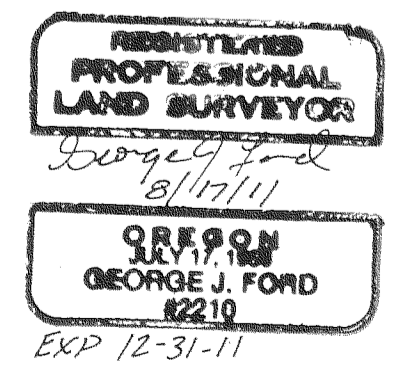 REGISTERED
PROFESSIONAL
LAND SURVEYOR
George J Ford
8/17/11
OREGON
JULY 17,
GEORGE J. FORD
#2210
EXP 12-31-11